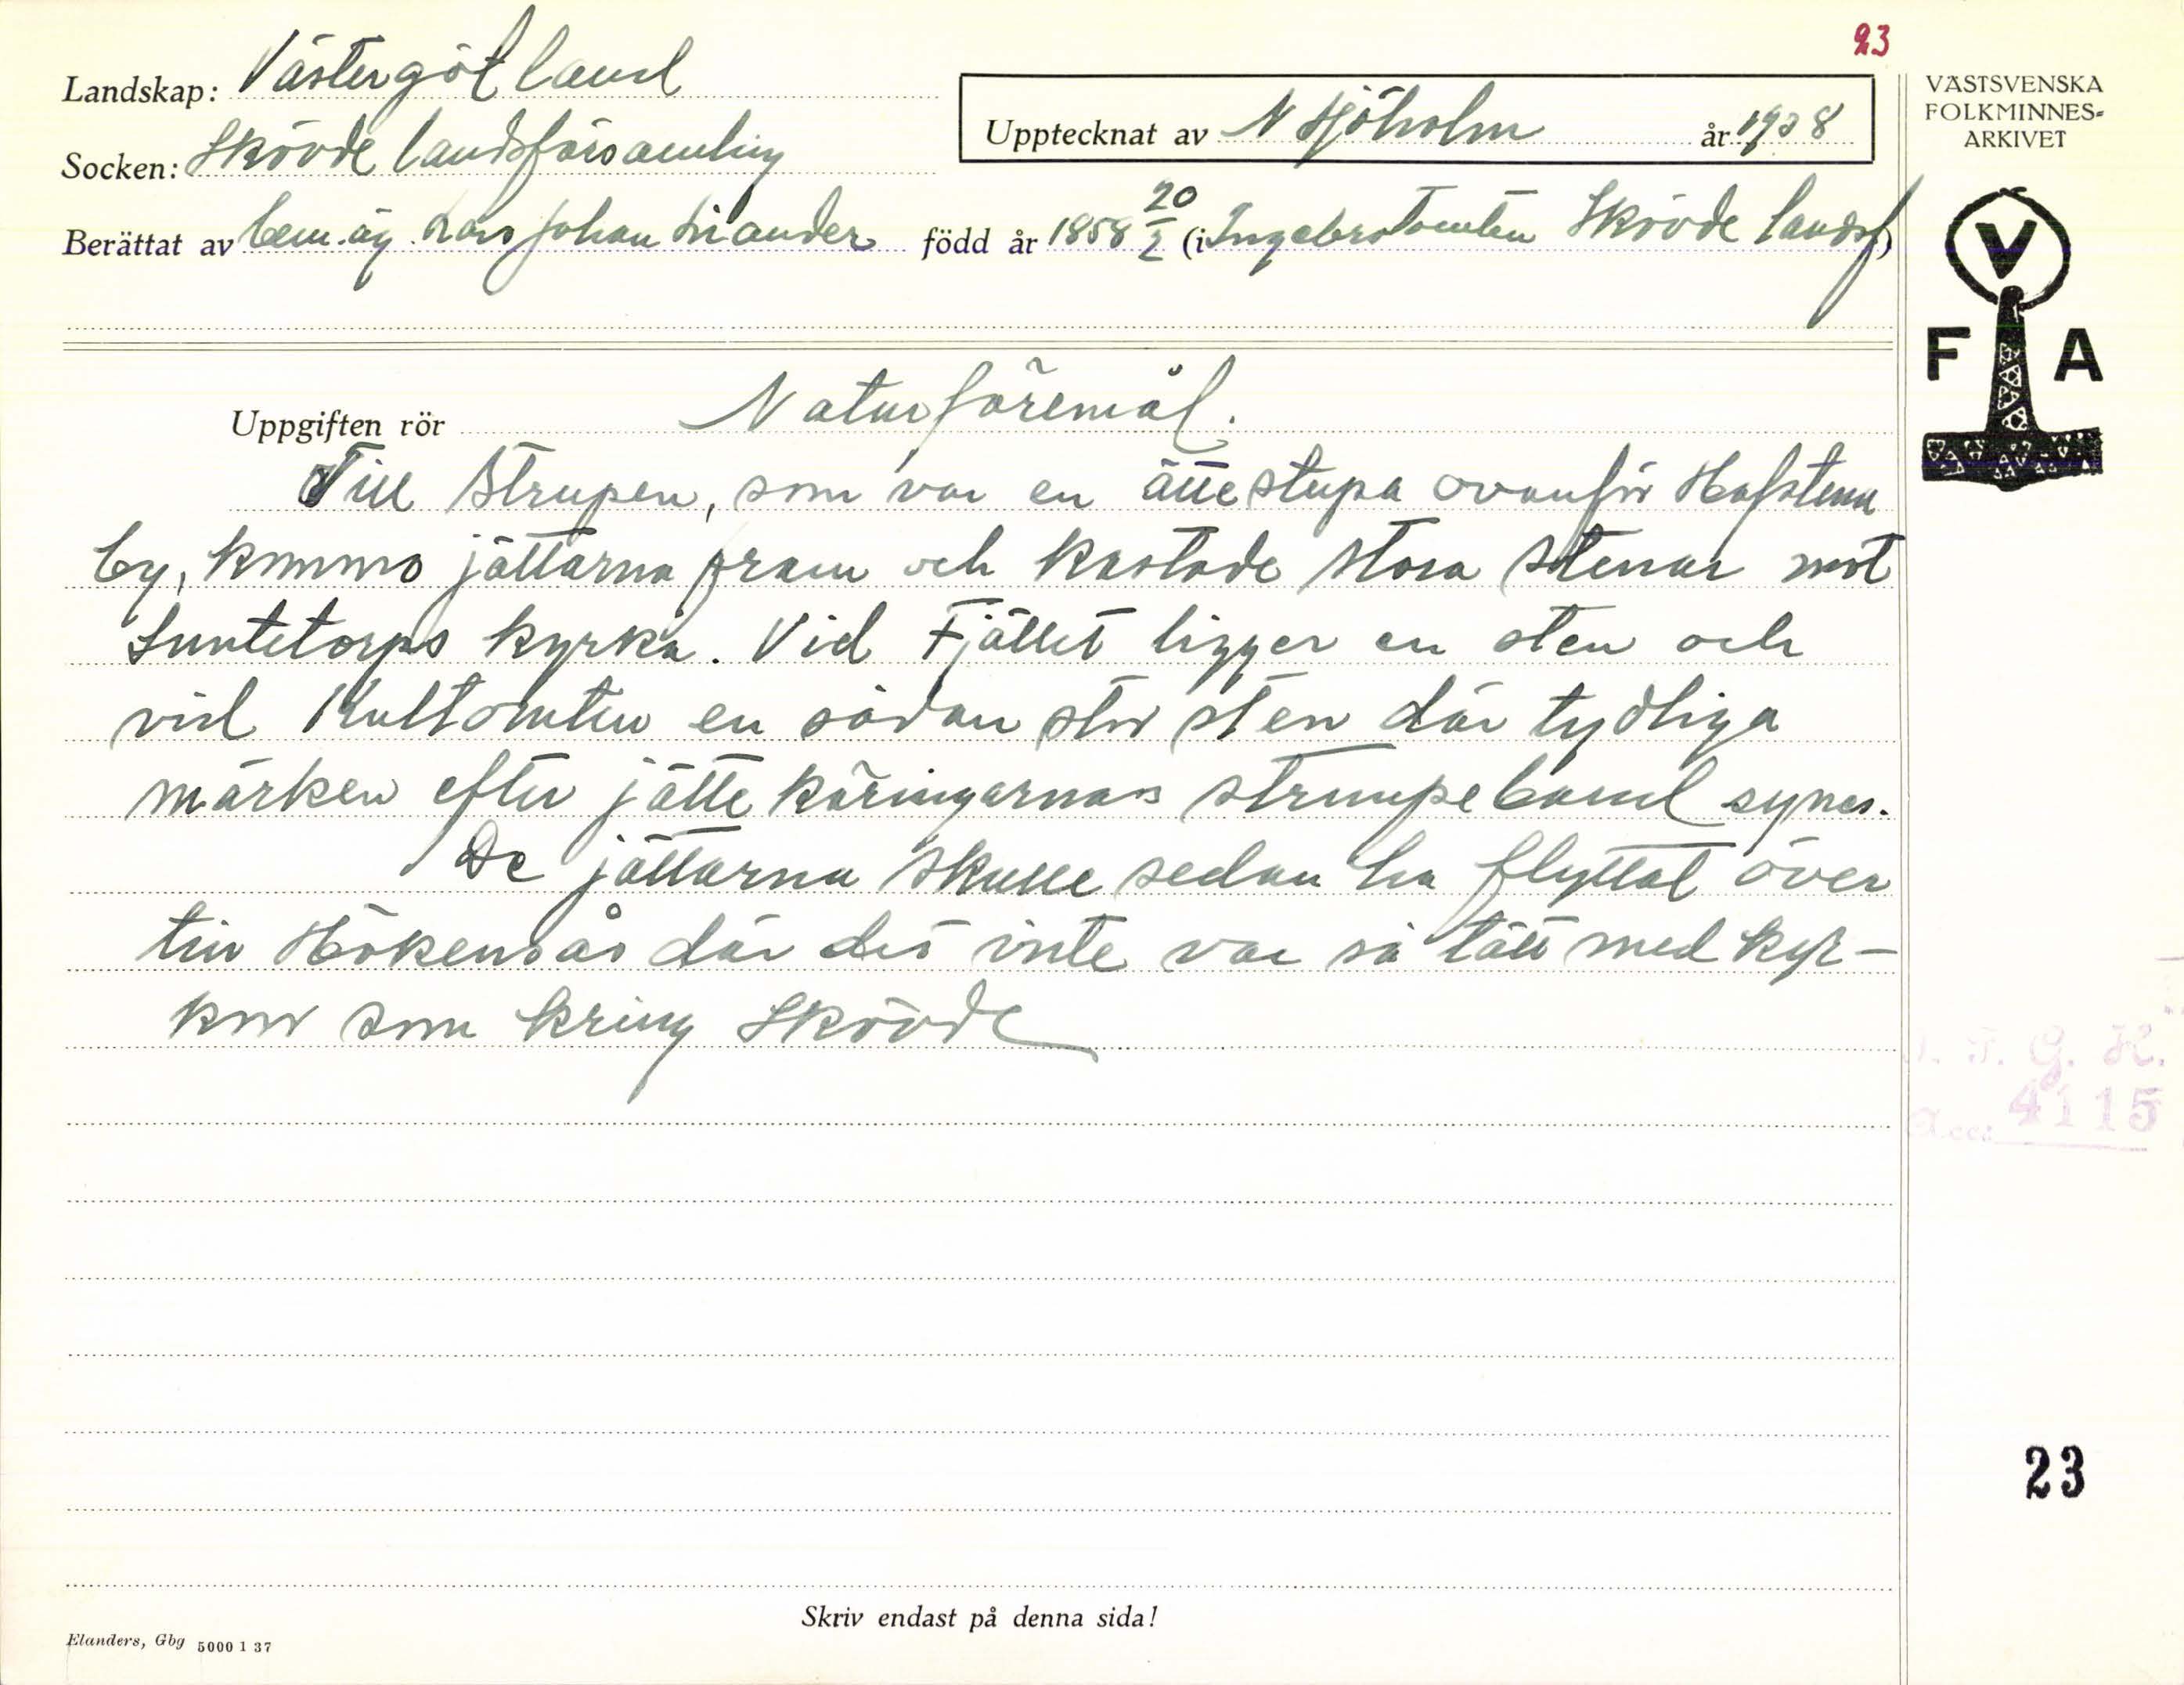 23
Landskap: Västergötland
Socken: Skövde landsförsamling
Upptecknat av N Sjöholm år 1938
Berättat av hem.äg. Lars Johan Linander född år 1858 20/2 (i Ingebrotomten Skövde landsf)
VÄSTSVENSKA
FOLKMINNES-
ARKIVET
V
F A
Uppgiften rör Naturföremål.
Till Strupen, som var en ättestupa ovanför Hafstena
by, kommo jättarna fram och kastade stora stenar mot
Suntetorps kyrka. Vid Fjället ligger en sten och
vid Kulltomten en sådan stor sten där tydliga
märken efter jättekäringarnas strumpeband synes.
De jättarna skulle sedan ha flyttat över
till Hökensås där det inte var så tätt med kyr-
kor som kring Skövde
I. F. G. H.
Acc. 4115
23
Skriv endast på denna sida!
Elanders, Gbg 5000 1 37